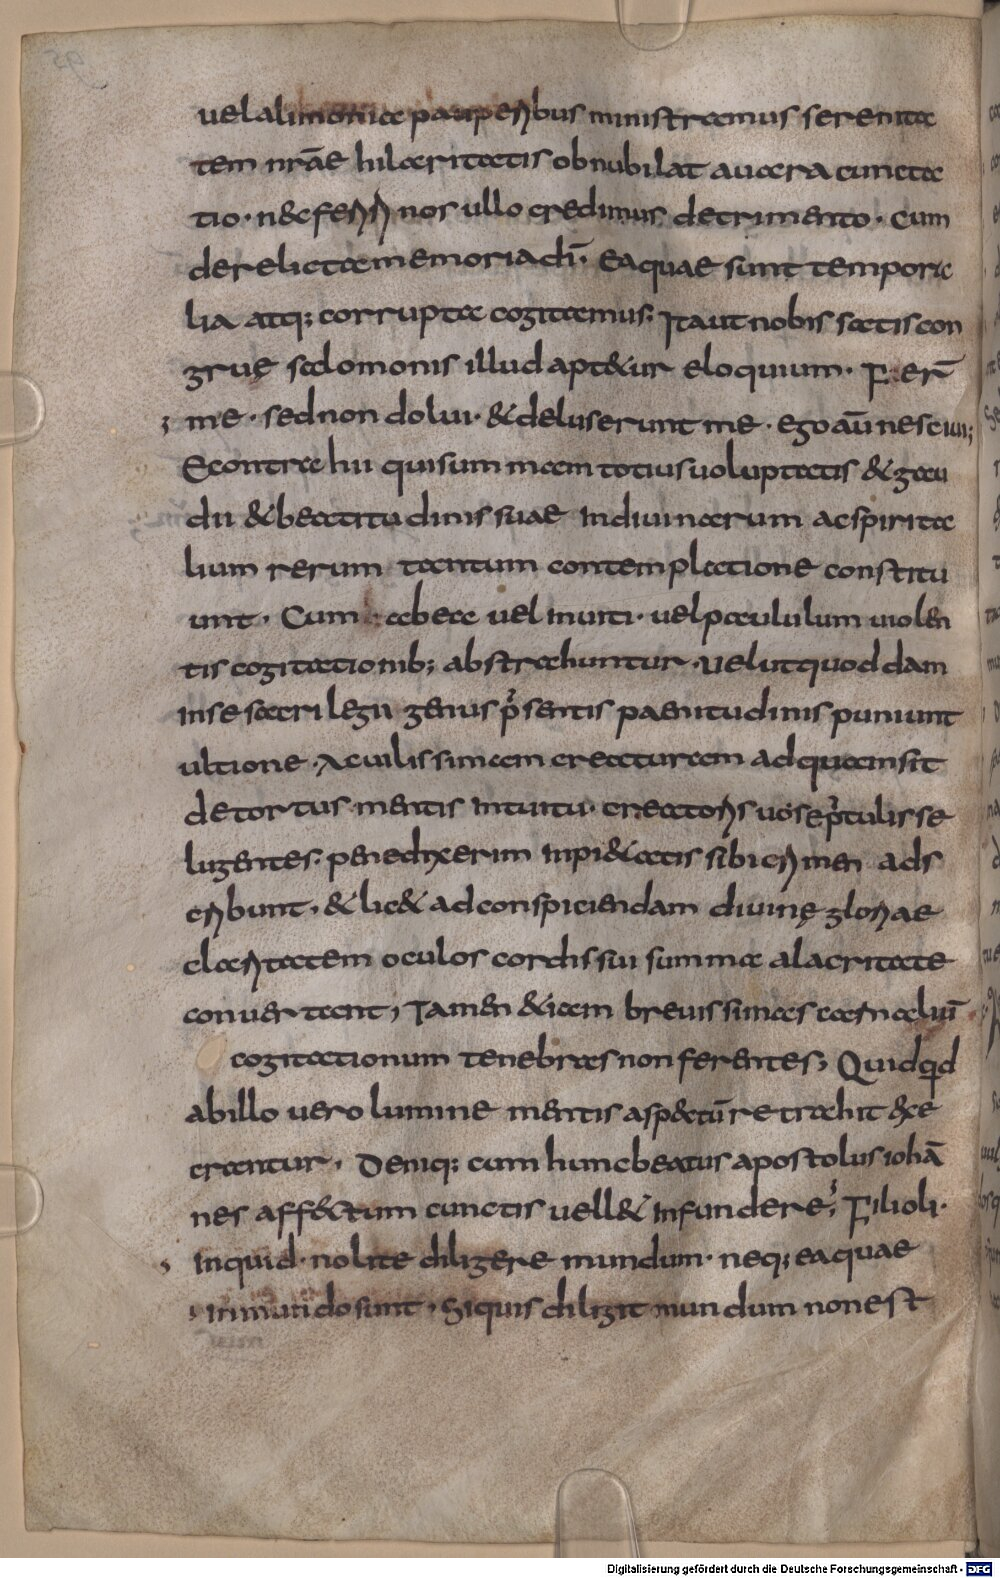 vel alimoniae pauperibus ministramus serenita
tem nr̄ae hilaritatis obnubilat avara cuncta
tio · n&c ferri nos ullo credimus detrimento · Cum
derelicta memoria dī · Ea quae sunt tempora
lia atq; corrupta cogitamus; Ita ut nobis satis con
gruę salomonis illud apt&ur eloquium · Fer̄
me · sed non dolui · & deluserunt me · ego aū nesciui;
E contra hii qui summam totius voluptatis & gau
dii & beatitudinis suae In divinarum ac spirita
lium rerum tantum contemplatione constitu
unt · Cum ab ea vel inviti · vel paululum violen
tis cogitationib; abstrahuntur · velut quoddam
In se sacrilegii genus p̄sentis paenitudinis puniunt
ultione · Ac vilissimam creaturam ad quam sit
detortus mentis Intuitu · creatoris suo se p̄tulisse
lugentes · pene dixerim Inpi&atis sibi crimen ads
cribunt · & lic& ad conspiciendam divinę gloriae
claritatem oculos cordis sui summa alacritate
convertant, Tamen &iam brevissimas carnaliū
cogitationum tenebras non ferentes, Quidqd
ab illo vero lumine mentis asp&tū retrahit &xe
crantur, Deniq; cum hunc beatus apostolus iohā
nes aff&ctum cunctis vell& Infundere; Filioli ·
Inquid · nolite diligere mundum · neq; ea quae
in mundo sunt, Si quis diligit mundum non est
Digitalisierung gefördert durch die Deutsche Forschungsgemeinschaft - DFG